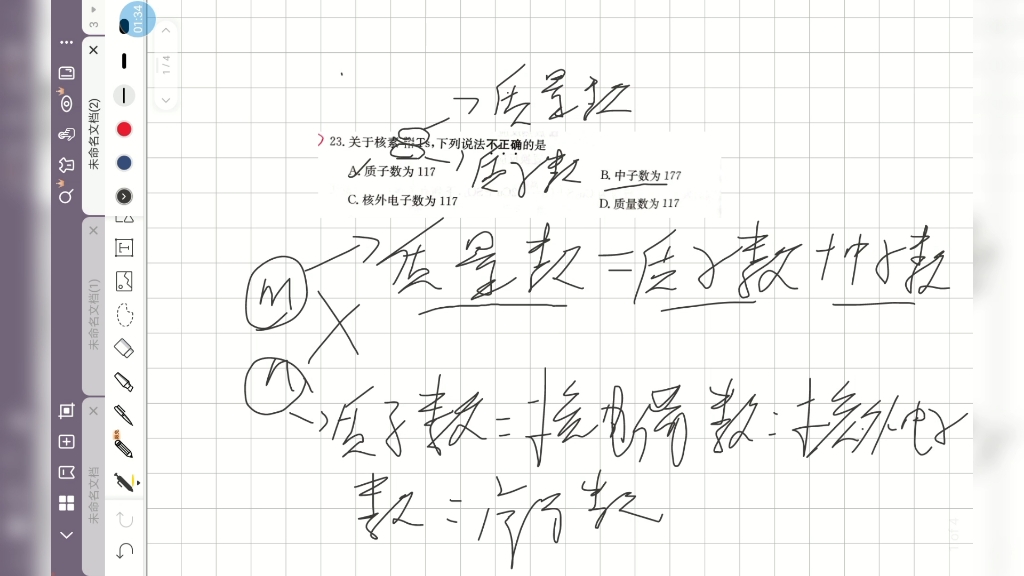 01:34
3
1/4
未命名文档(2)
未命名文档(1)
未命名文档
质量数
23. 关于核素 Ts,下列说法不正确的是
质子数
A. 质子数为 117
B. 中子数为 177
C. 核外电子数为 117
D. 质量数为 117
m X 质量数=质子数+中子数
n 质子数=核电荷数=核外电子
数=序数